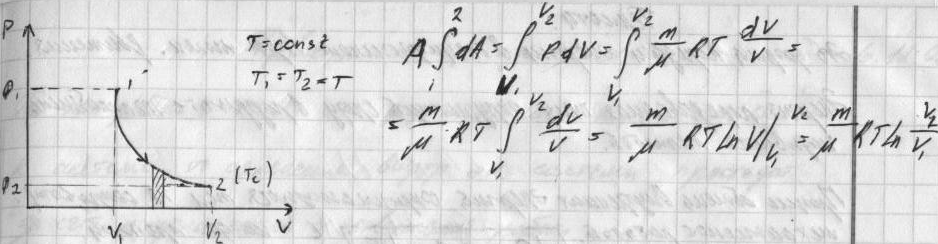 P
P₁
1
P₂
2 (T₀)
V₁
V₂
V
T = const
T₁ = T₂ = T
A ∫₁² dA = ∫_{V₁}^{V₂} P dV = ∫_{V₁}^{V₂} m/μ RT dV/V =
= m/μ RT ∫_{V₁}^{V₂} dV/V = m/μ RT ln V/_{V₁}^{V₂} = m/μ RT ln V₂/V₁